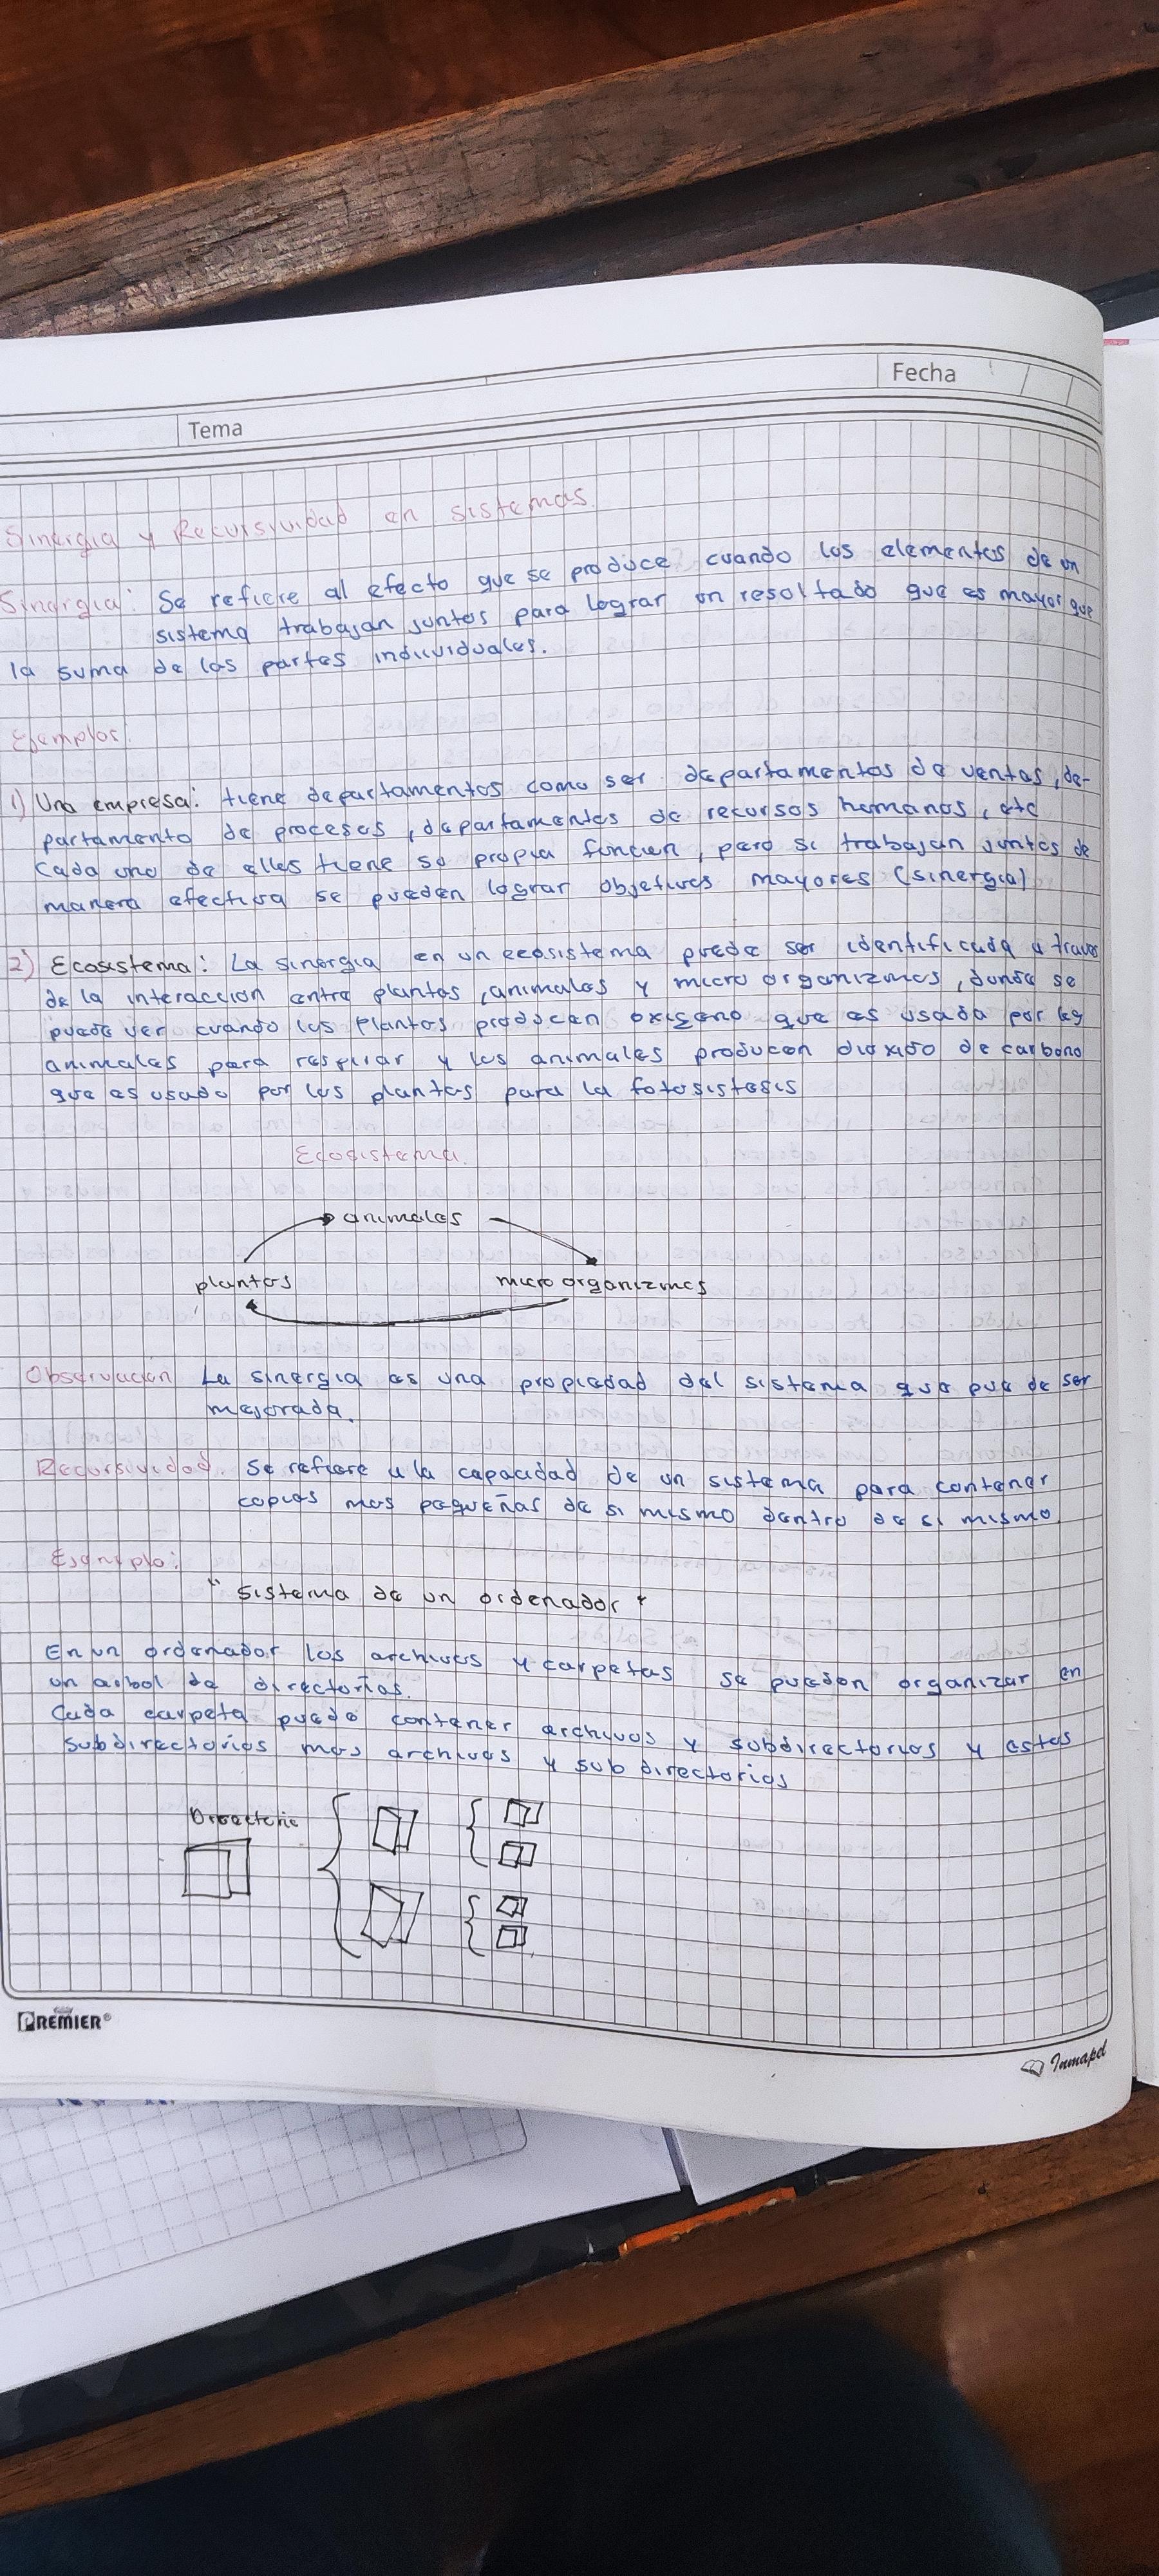 Fecha
Tema
Sinergia y Recursividad en sistemas.
Sinergia: Se refiere al efecto que se produce cuando los elementos de un
sistema trabajan juntos para lograr un resultado que es mayor que
la suma de las partes individuales.
Ejemplos:
1) Una empresa: tiene departamentos como ser departamentos de ventas, de-
partamento de procesos, departamentos de recursos humanos, etc
Cada uno de ellos tiene su propia funcion, pero si trabajan juntos de
manera efectiva se pueden lograr objetivos mayores (sinergia)
2) Ecosistema: La sinergia en un ecosistema puede ser identificada a traves
de la interaccion entre plantas, animales y micro organizmos, donde se
puede ver cuando las plantas producen oxigeno que es usada por los
animales para respirar y los animales producen dioxido de carbono
que es usado por las plantas para la fotosistesis
Ecosistema.
animales
plantas micro organizmos
Observación La sinergia es una propiedad del sistema que puede ser
mejorada.
Recursividad. Se refiere a la capacidad de un sistema para contener
copias mas pequeñas de si mismo dentro de si mismo
Ejemplo:
"sistema de un ordenador"
En un ordenador los archivos y carpetas se pueden organizar en
un arbol de directorios.
Cada carpeta puede contener archivos y subdirectorios y estos
subdirectorios mas archivos y sub directorios
Directorio
PREMIER®
Inmapel